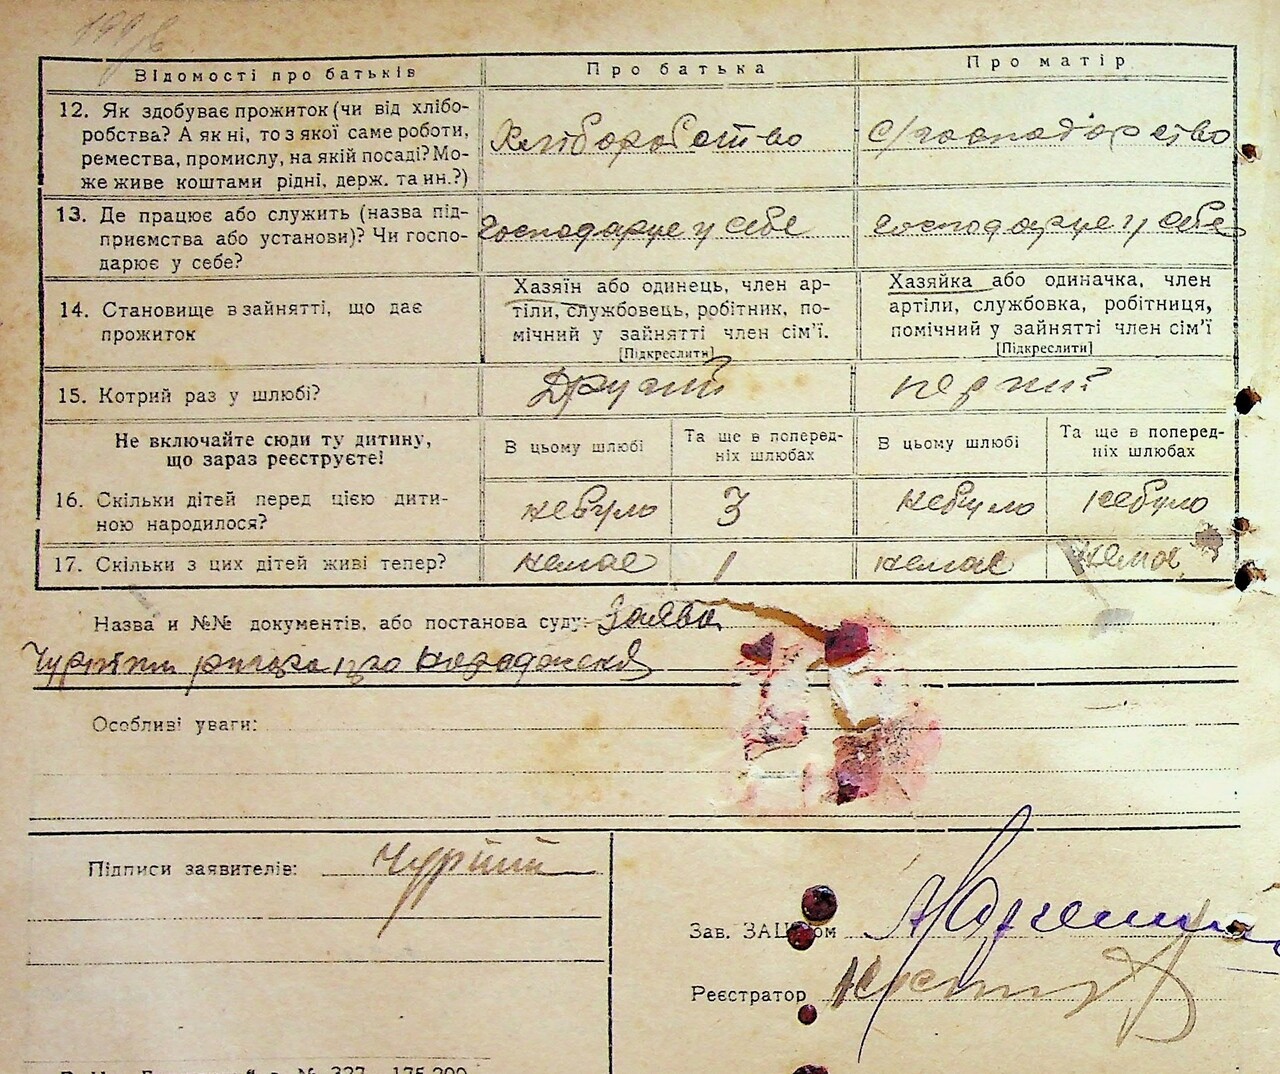 Відомості про батьків
Про батька
Про матір
12. Як здобуває прожиток (чи від хлібо-
робства? А як ні, то з якої саме роботи,
ремества, промислу, на якій посаді? Мо-
же живе коштами рідні, держ. та ин.?)
Хліборобство
С/господарство
13. Де працює або служить (назва під-
приємства або установи)? Чи госпо-
дарює у себе?
Господарує у себе
Господарує у себе
14. Становище в зайнятті, що дає
прожиток
Хазяїн або одинець, член ар-
тіли, службовець, робітник, по-
мічний у зайнятті член сім'ї.
[Підкреслити]
Хазяйка або одиначка, член
артіли, службовка, робітниця,
помічний у зайнятті член сім'ї
[Підкреслити]
15. Котрий раз у шлюбі?
Другий
первий
Не включайте сюди ту дитину,
що зараз реєструєте!
В цьому шлюбі
Та ще в поперед-
ніх шлюбах
В цьому шлюбі
Та ще в поперед-
ніх шлюбах
16. Скільки дітей перед цією дити-
ною народилося?
небуло
3
небуло
небуло
17. Скільки з цих дітей живі тепер?
немає
1
немає
немає
Назва и №№ документів, або постанова суду: Заява
про народження
Особливі уваги:
Підписи заявителів:
Зав. ЗАЦСом
Реєстратор
№ 327 175.200